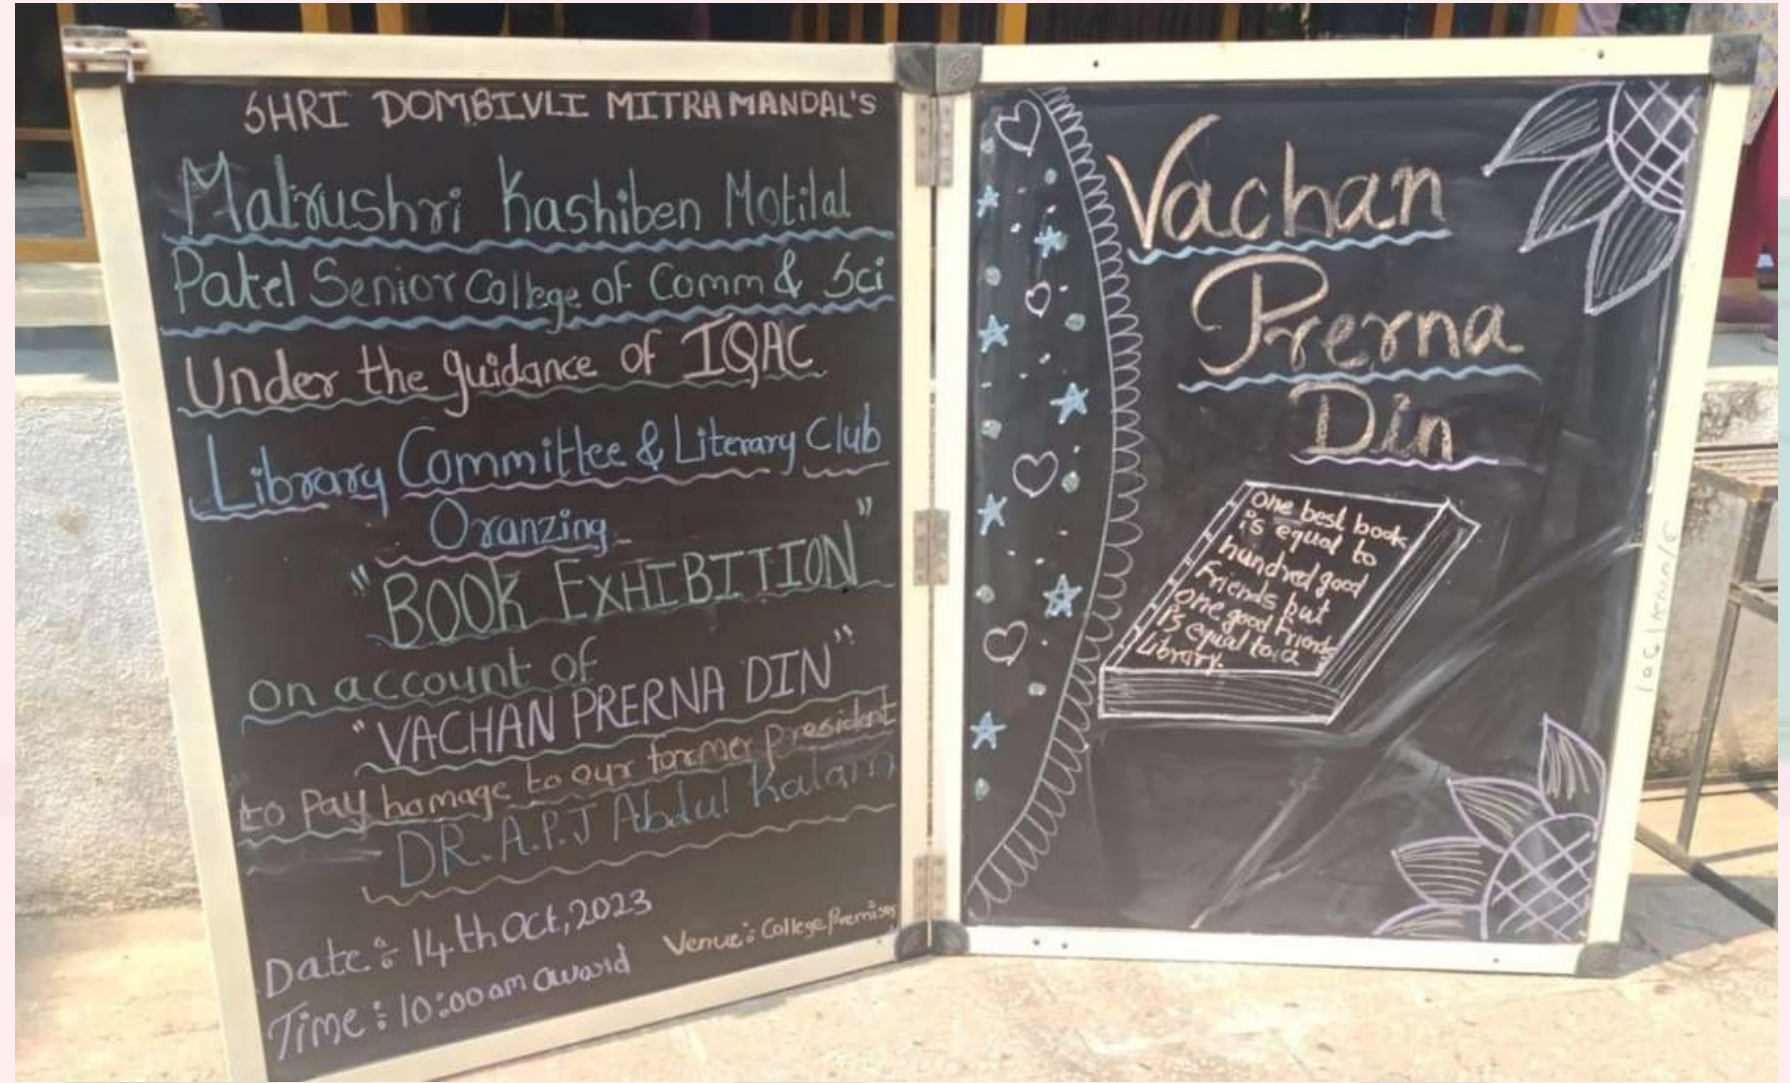 SHRI DOMBIVLI MITRA MANDAL'S
Matrushri Kashiben Motilal
Patel Senior College of Comm & Sci
Under the guidance of IQAC
Library Committee & Literary Club
Oranzing
"BOOK EXHIBITION"
on account of
"VACHAN PRERNA DIN"
to Pay hamage to our former president
DR. A.P.J Abdul Kalam
Date : 14th Oct, 2023
Time : 10:00 am award
Venue : College Premises
Vachan
Prerna
Din
One best book
is equal to
hundred good
Friends but
one good Friends
is equal to a
Library.